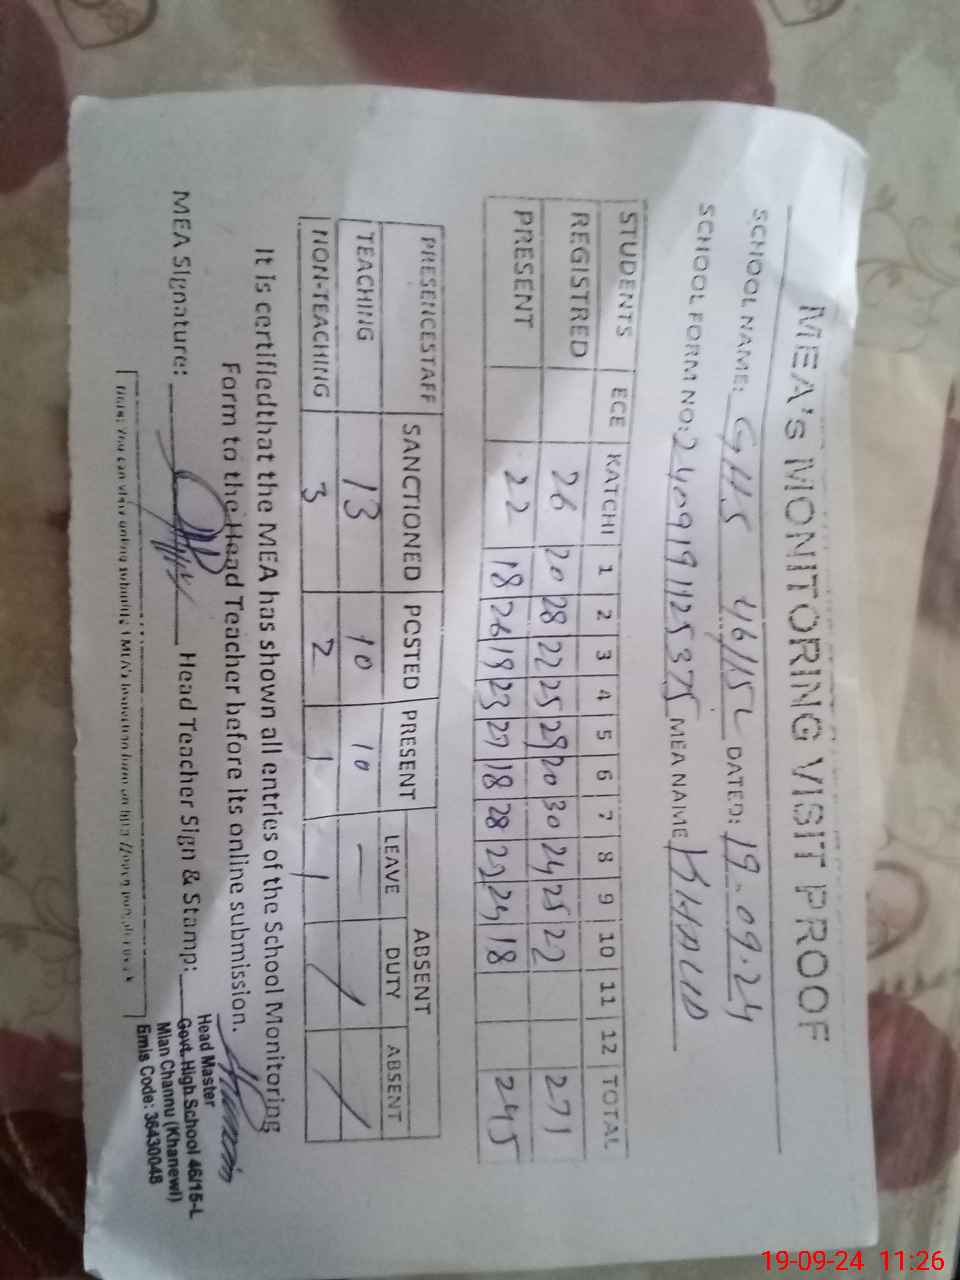 MEA's MONITORING VISIT PROOF
SCHOOL NAME: GHS 46/15L DATED: 19-09-24
SCHOOL FORM NO: 2409191125375 MEA NAME KHALID
STUDENTS ECE KATCHI 1 2 3 4 5 6 7 8 9 10 11 12 TOTAL
REGISTRED 26 20 28 22 25 29 20 30 24 25 22 271
PRESENT 22 18 26 19 23 27 18 28 22 24 18 245
PRESENCESTAFF SANCTIONED POSTED PRESENT ABSENT
LEAVE DUTY ABSENT
TEACHING 13 10 10 —
NON-TEACHING 3 2 1 1 / /
It is certifiedthat the MEA has shown all entries of the School Monitoring
Form to the Head Teacher before its online submission.
MEA Signature: Head Teacher Sign & Stamp:
Head Master
Govt. High School 46/15-L
Mian Channu (Khanewl)
Emis Code: 36430048
Note: You can view online submitted MEA's inspection form on
19-09-24 11:26